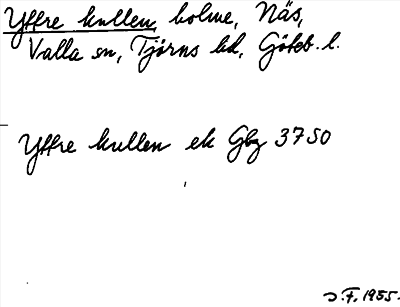 Yttre kullen, holme, Näs,
Valla sn, Tjörns hd, Göteb. l.
Yttre kullen ek Gbg 3750
J.F. 1955.